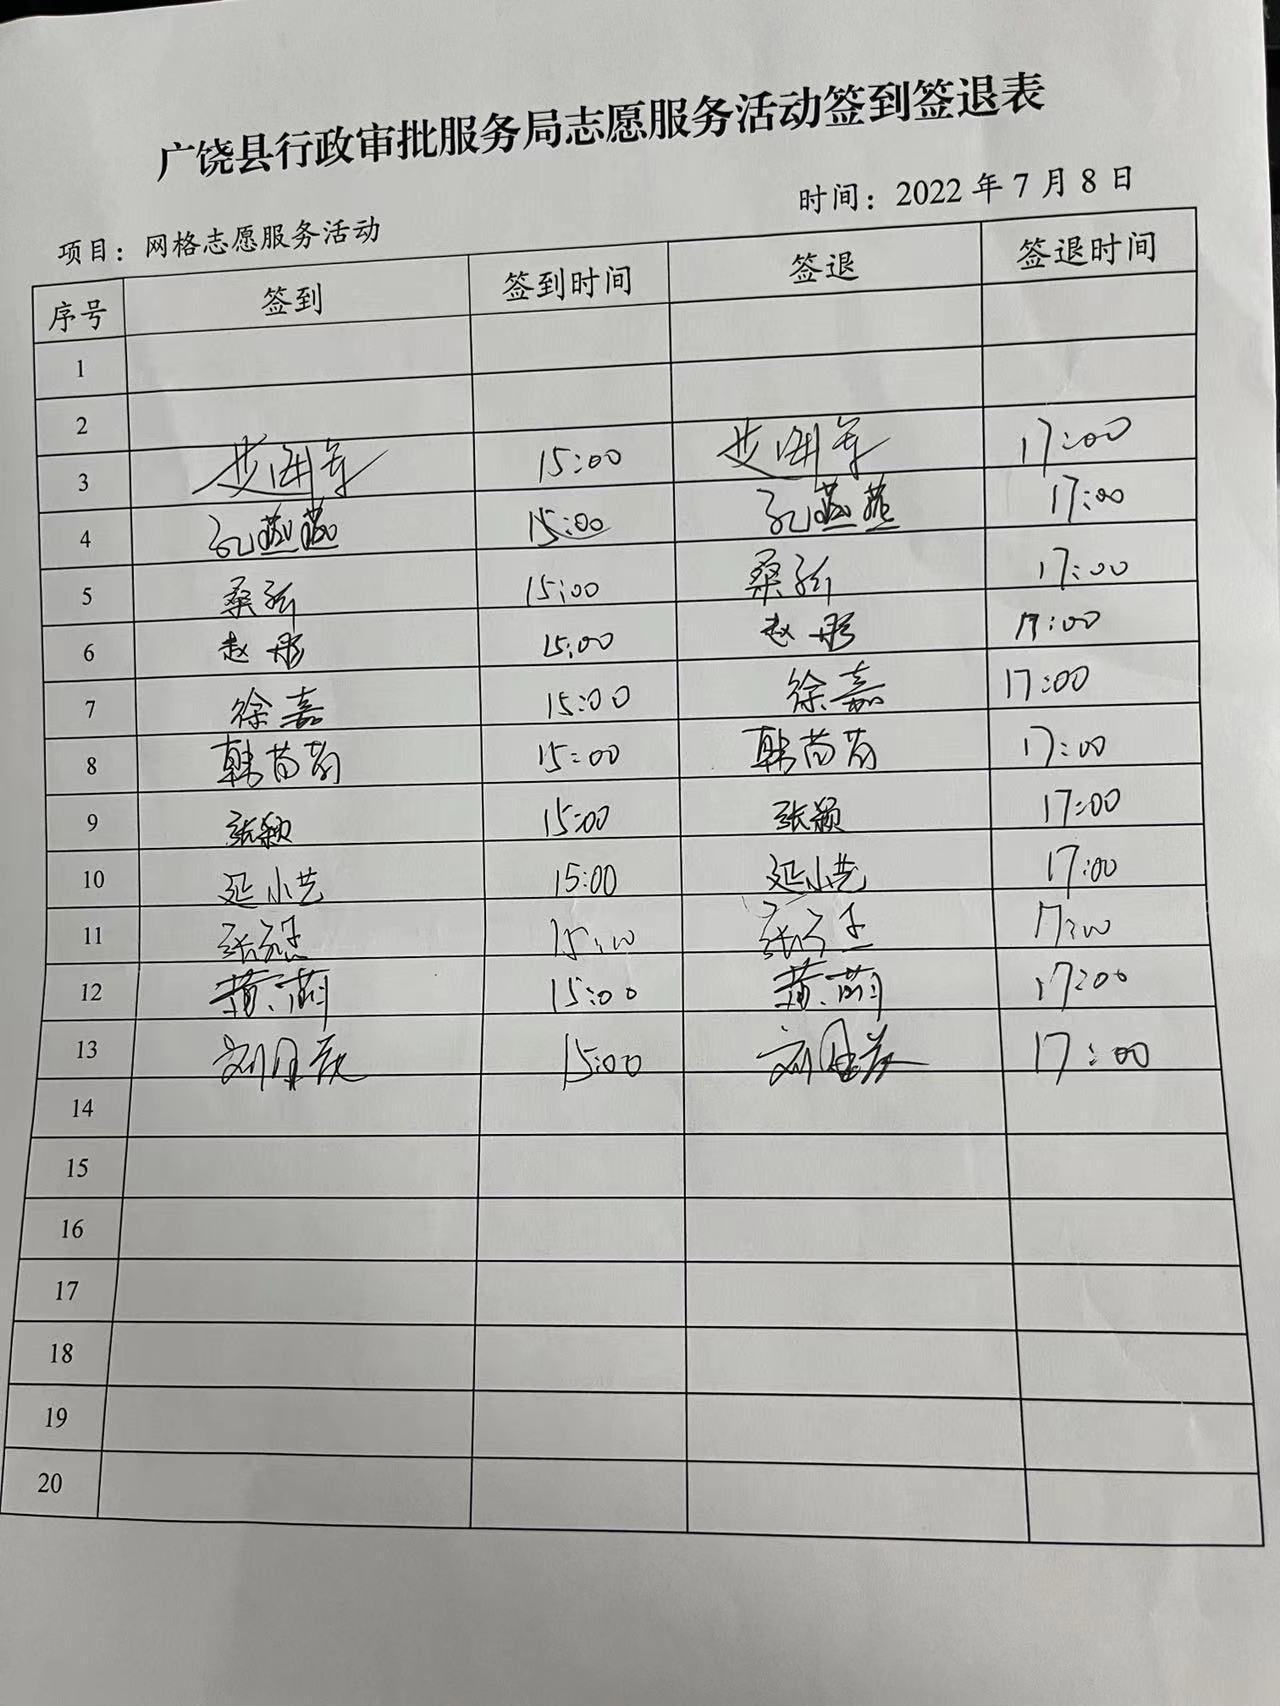 广饶县行政审批服务局志愿服务活动签到签退表
项目：网格志愿服务活动 时间：2022 年 7 月 8 日
序号 签到 签到时间 签退 签退时间
1
2
3 15:00 17:00
4 孔燕燕 15:00 孔燕燕 17:00
5 桑 15:00 桑 17:00
6 赵彤 15:00 赵彤 17:00
7 徐嘉 15:00 徐嘉 17:00
8 韩苗苗 15:00 韩苗苗 17:00
9 张颖 15:00 张颖 17:00
10 延小艺 15:00 延小艺 17:00
11 张 15:00 张 17:00
12 黄萌 15:00 黄萌 17:00
13 刘 15:00 刘 17:00
14
15
16
17
18
19
20